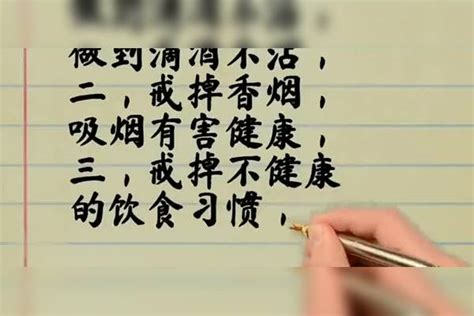 做到滴酒不沾，
二，戒掉香烟，
吸烟有害健康，
三，戒掉不健康
的饮食习惯，